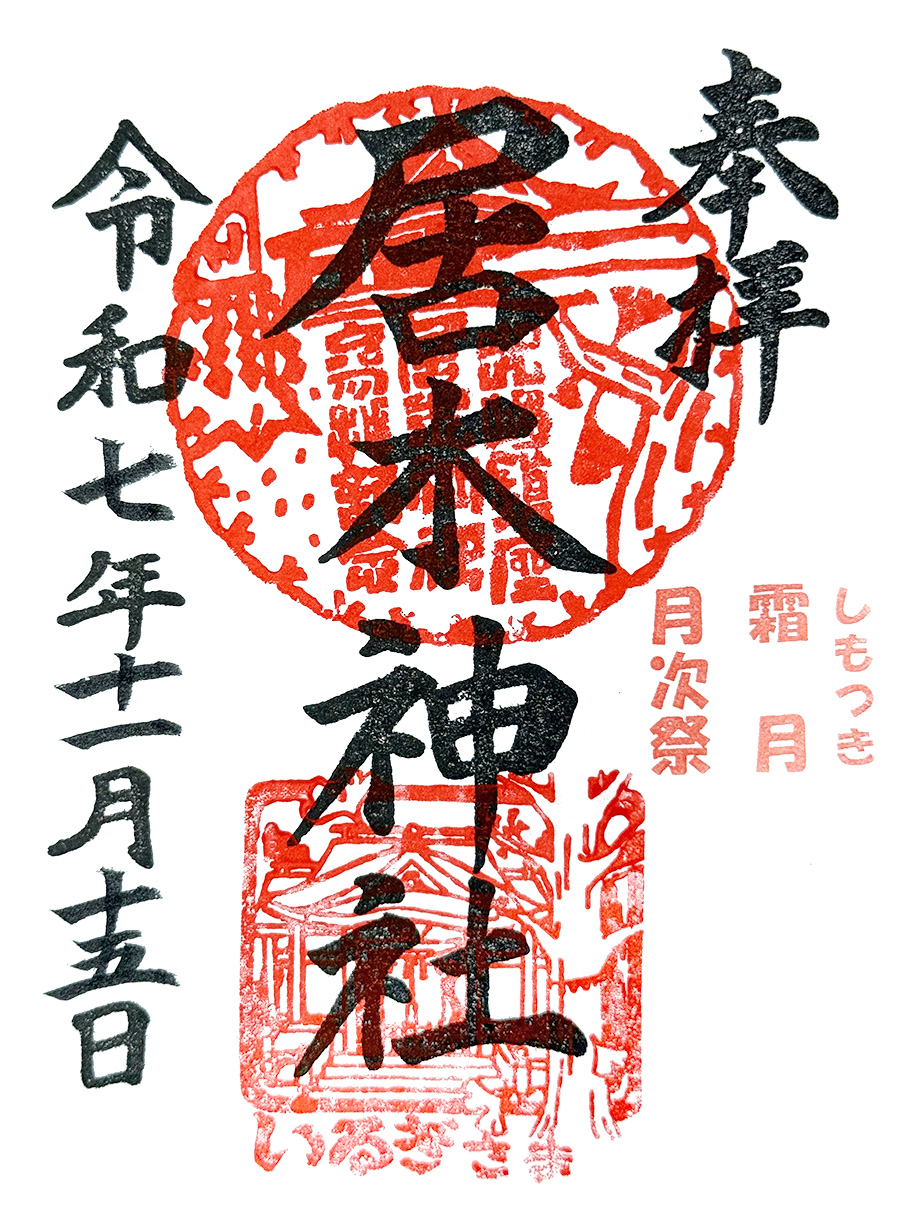 奉拝
しもつき
霜月
月次祭
居木神社
いるぎさま
令和七年十一月十五日